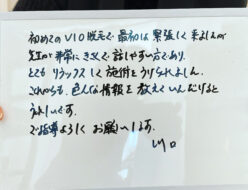 初めてのVIO脱毛で最初は緊張して来ましたが
先生が非常に気さくで話しやすい方であり
とてもリラックスして施術をうけられました。
これからも、色んな情報を教えていただけると
うれしいです。
ご指導よろしくお願いします。
川口